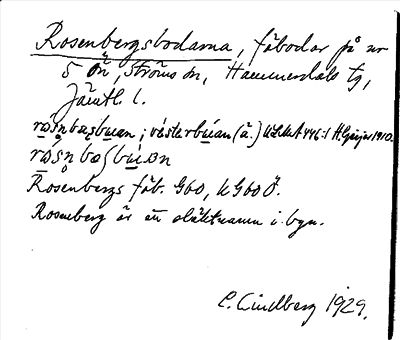 Rosenbergsbodarna, fäbodar på nr
5 Ön, Ströms sn, Hammerdals tg,
Jämtl. l.
rósnbæsbuan; vésterbúan (ä.) ULMA 446:1 H. Geijer 1910.
rósnbæsbúan
Rosenbergs fäb. G 60, k G 60 Ö.
Rosenberg är ett släktnamn i byn.
C. Lindberg 1929.